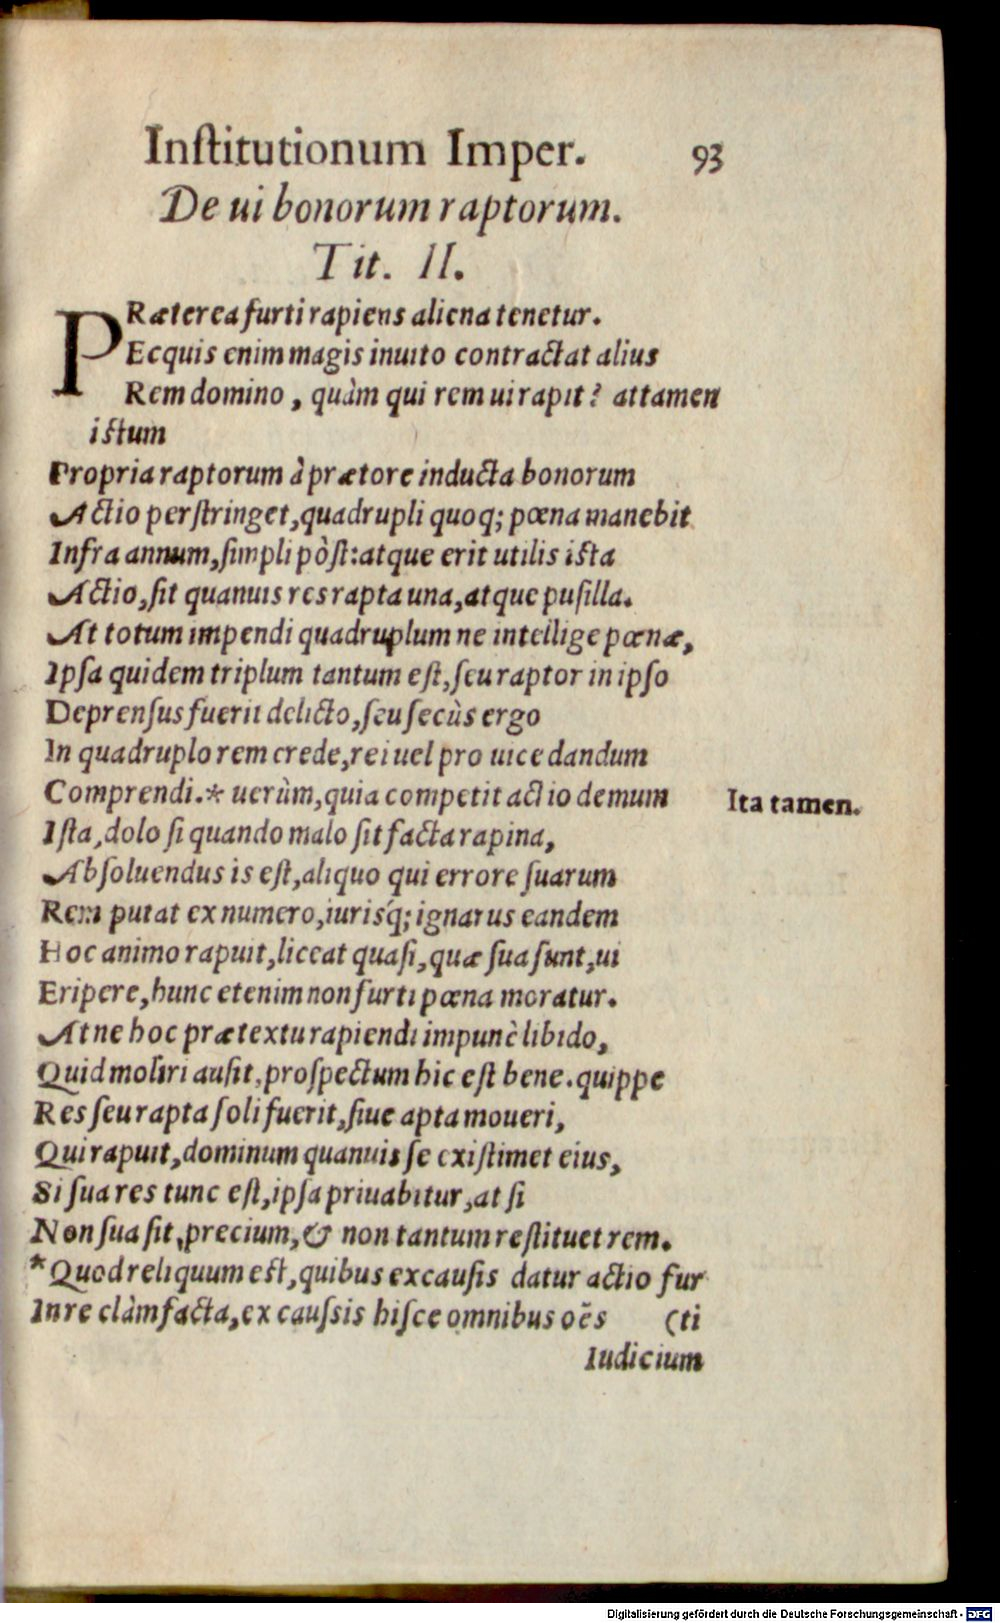 Inſtitutionum Imper. 93
De ui bonorum raptorum.
Tit. II.
PRæterea furti rapiens aliena tenetur.
Ecquis enim magis inuito contractat alius
Rem domino, quàm qui rem ui rapit? attamen
iſtum
Propria raptorum à prætore inducta bonorum
Actio perſtringet, quadrupli quoq; pœna manebit
Infra annum, ſimpli pòſt: atque erit utilis iſta
Actio, ſit quanuis res rapta una, atque puſilla.
At totum impendi quadruplum ne intellige pœnæ,
Ipſa quidem triplum tantum eſt, ſeu raptor in ipſo
Deprenſus fuerit delicto, ſeu ſecùs ergo
In quadruplo rem crede, rei uel pro uice dandum
Comprendi.* uerùm, quia competit actio demum
Ita tamen.
Iſta, dolo ſi quando malo ſit facta rapina,
Abſoluendus is eſt, aliquo qui errore ſuarum
Rem putat ex numero, iurisq́; ignarus eandem
Hoc animo rapuit, liceat quaſi, quæ ſua ſunt, ui
Eripere, hunc etenim non furti pœna moratur.
At ne hoc prætextu rapiendi impunè libido,
Quid moliri auſit, proſpectum hic eſt bene. quippe
Res ſeu rapta ſoli fuerit, ſiue apta moueri,
Qui rapuit, dominum quanuis ſe exiſtimet eius,
Si ſua res tunc eſt, ipſa priuabitur, at ſi
Non ſua ſit, precium, & non tantum reſtituet rem.
*Quod reliquum eſt, quibus ex cauſis datur actio fur
In re clàm facta, ex cauſsis hiſce omnibus oẽs (ti
Iudicium
Digitalisierung gefördert durch die Deutsche Forschungsgemeinschaft - DFG